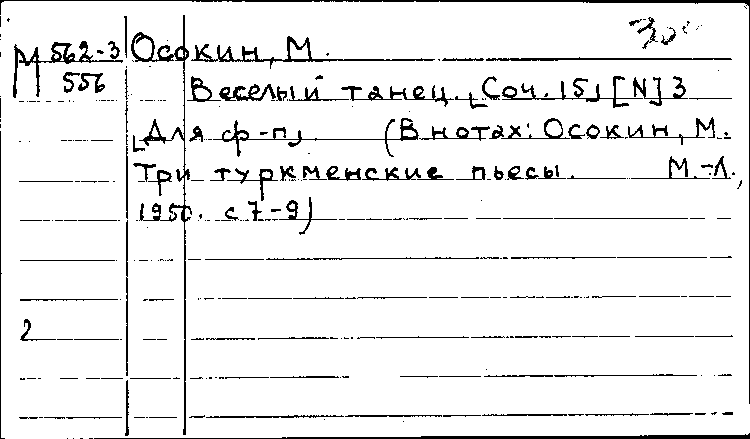 М 562-3 Осокин, М.
556 Веселый танец. ⌞Соч. 15⌟ [N] 3
⌞Для ф-п⌟. (В нотах: Осокин, М.
Три туркменские пьесы. М.-Л.,
1950. с 7-9)
2